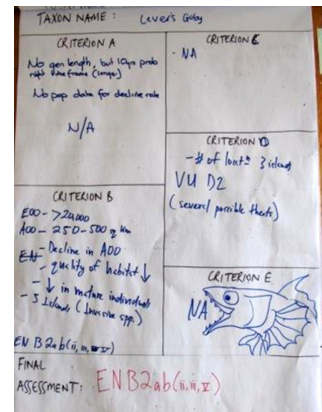 TAXON NAME: Lever's Goby
CRITERION A
No gen length, but 10yrs prob
right timeframe (longer)
No pop data for decline rate
N/A
CRITERION C
- NA
CRITERION B
EOO - >20,000
AOO - 250-500 q km
EN - Decline in AOO
- quality of habitat ↓
- ↓ in mature individual
- 5 Islands (Invasive spp.)
EN B2ab(ii, iii, v)
CRITERION D
- # of locatn 3 islands
VU D2
(several possible threats)
CRITERION E
NA
FINAL
ASSESSMENT: EN B2ab(ii,iii,v)